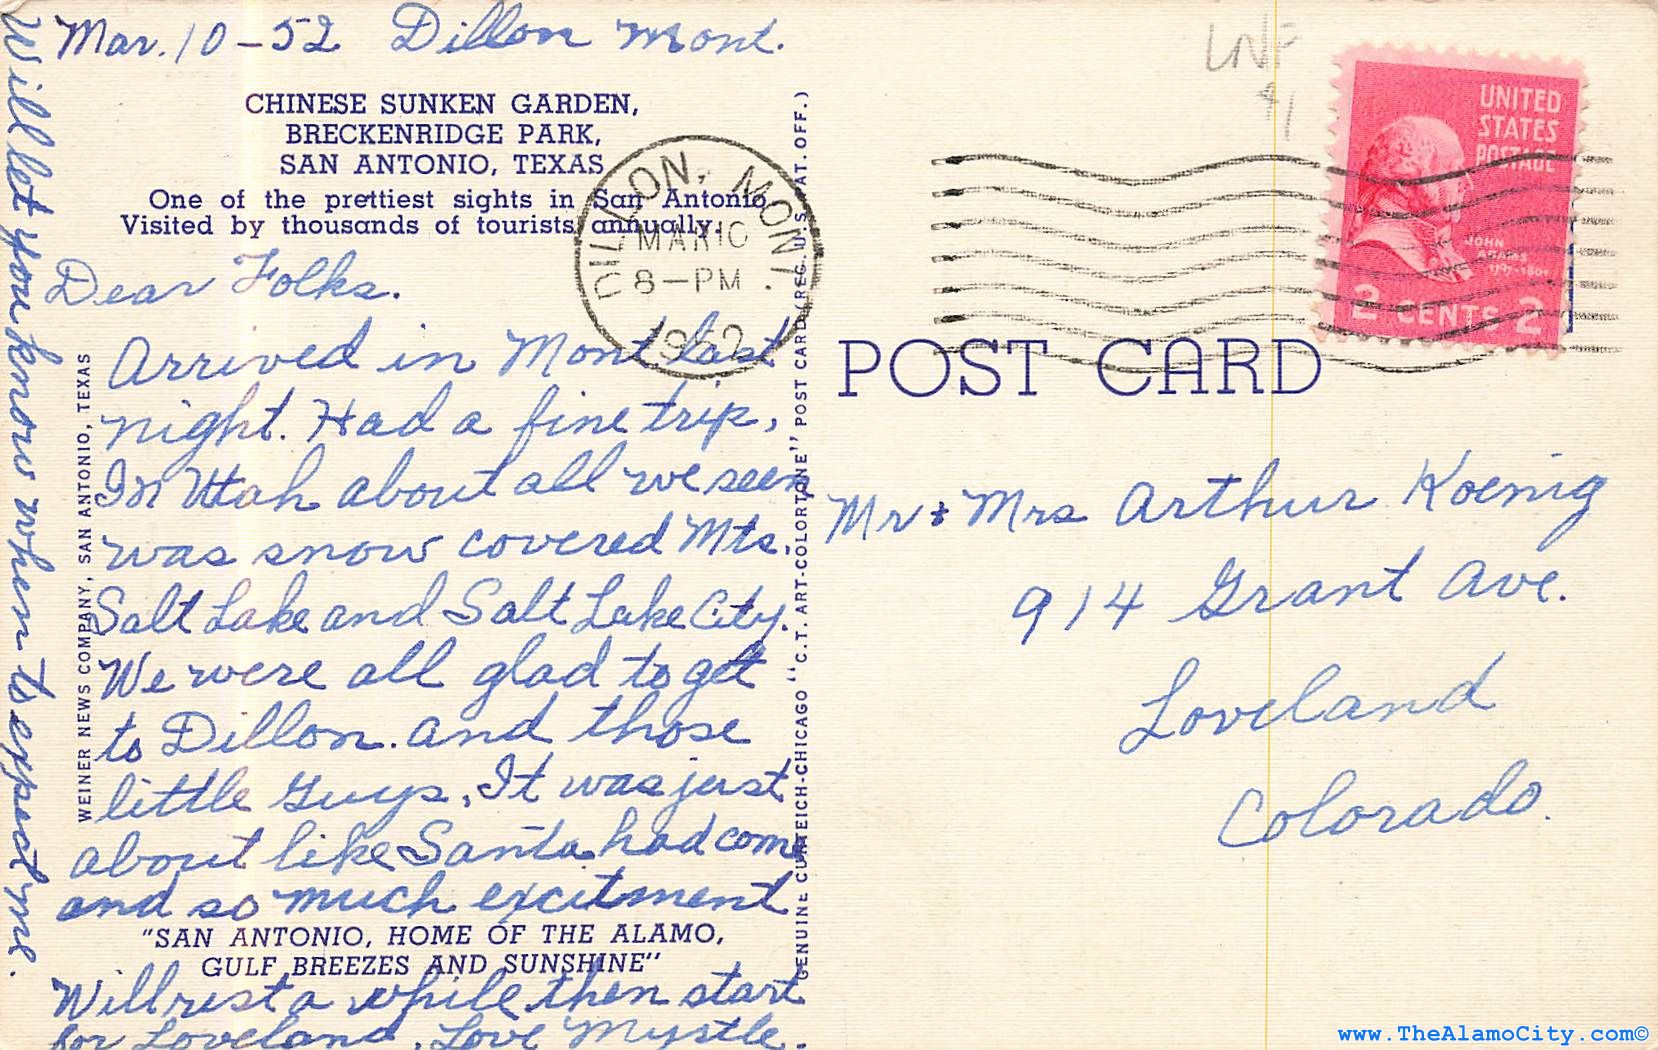 Mar. 10-52 Dillon Mont.
CHINESE SUNKEN GARDEN,
BRECKENRIDGE PARK,
SAN ANTONIO, TEXAS
One of the prettiest sights in San Antonio.
Visited by thousands of tourists annually.
Dear Folks.
Arrived in Mont last
night. Had a fine trip,
In Utah about all we seen
was snow covered Mts.
Salt Lake and Salt Lake City.
We were all glad to get
to Dillon. and those
little Guys. It was just
about like Santa had come
and so much excitment
"SAN ANTONIO, HOME OF THE ALAMO,
GULF BREEZES AND SUNSHINE"
Will rest a while then start
for Loveland. Love Myrtle.
Will let you know when to expect me.
WEINER NEWS COMPANY, SAN ANTONIO, TEXAS
GENUINE CURTEICH-CHICAGO "C.T. ART-COLORTONE" POST CARD (REG. U.S. PAT. OFF.)
DILLON, MONT.
MAR 10
8-PM
1952
LNF
$1
UNITED
STATES
POSTAGE
JOHN
ADAMS
1797-1801
2 CENTS 2
POST CARD
Mr & Mrs Arthur Koenig
914 Grant Ave.
Loveland
Colorado.
www.TheAlamoCity.com©